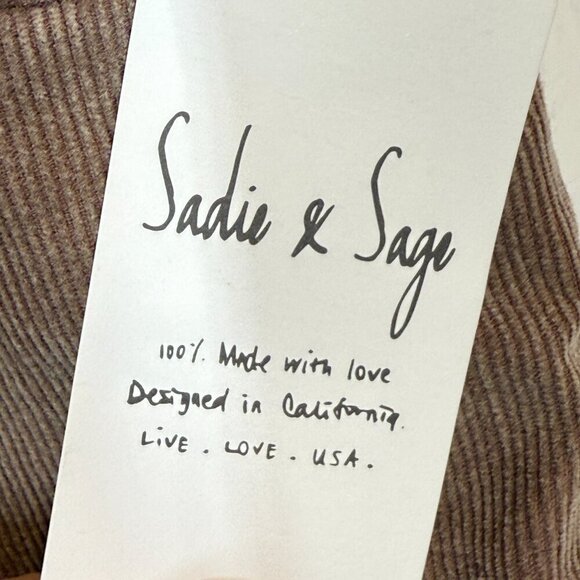 Sadie & Sage
100% Made with love
Designed in California.
LIVE . LOVE . USA .